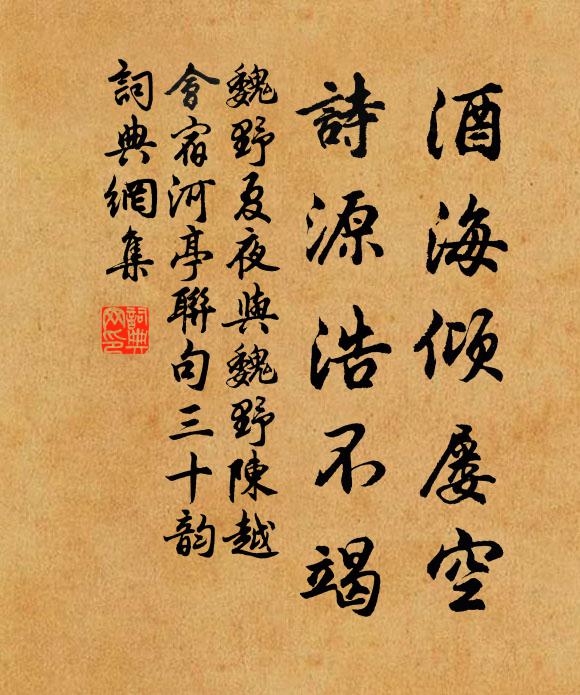 酒海傾屢空
詩源浩不竭
魏野夏夜與魏野陳越
會宿河亭聯句三十韵
詞典網集
詞典网印